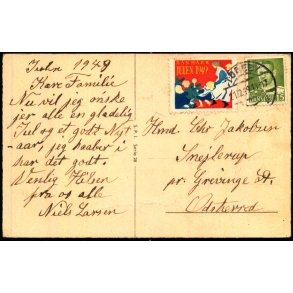 Julen 1949
Kære Familie
Nu vil jeg ønske
jer alle en glædelig
Jul og et godt Nyt-
aar, jeg haaber i
har det godt.
Venlig Hilsen
fra os alle
Niels Larsen
DANMARK
JULEN 1949
Hrnd. Chr Jakobsen
Snejlerup
pr. Grevinge St.
Odsherred